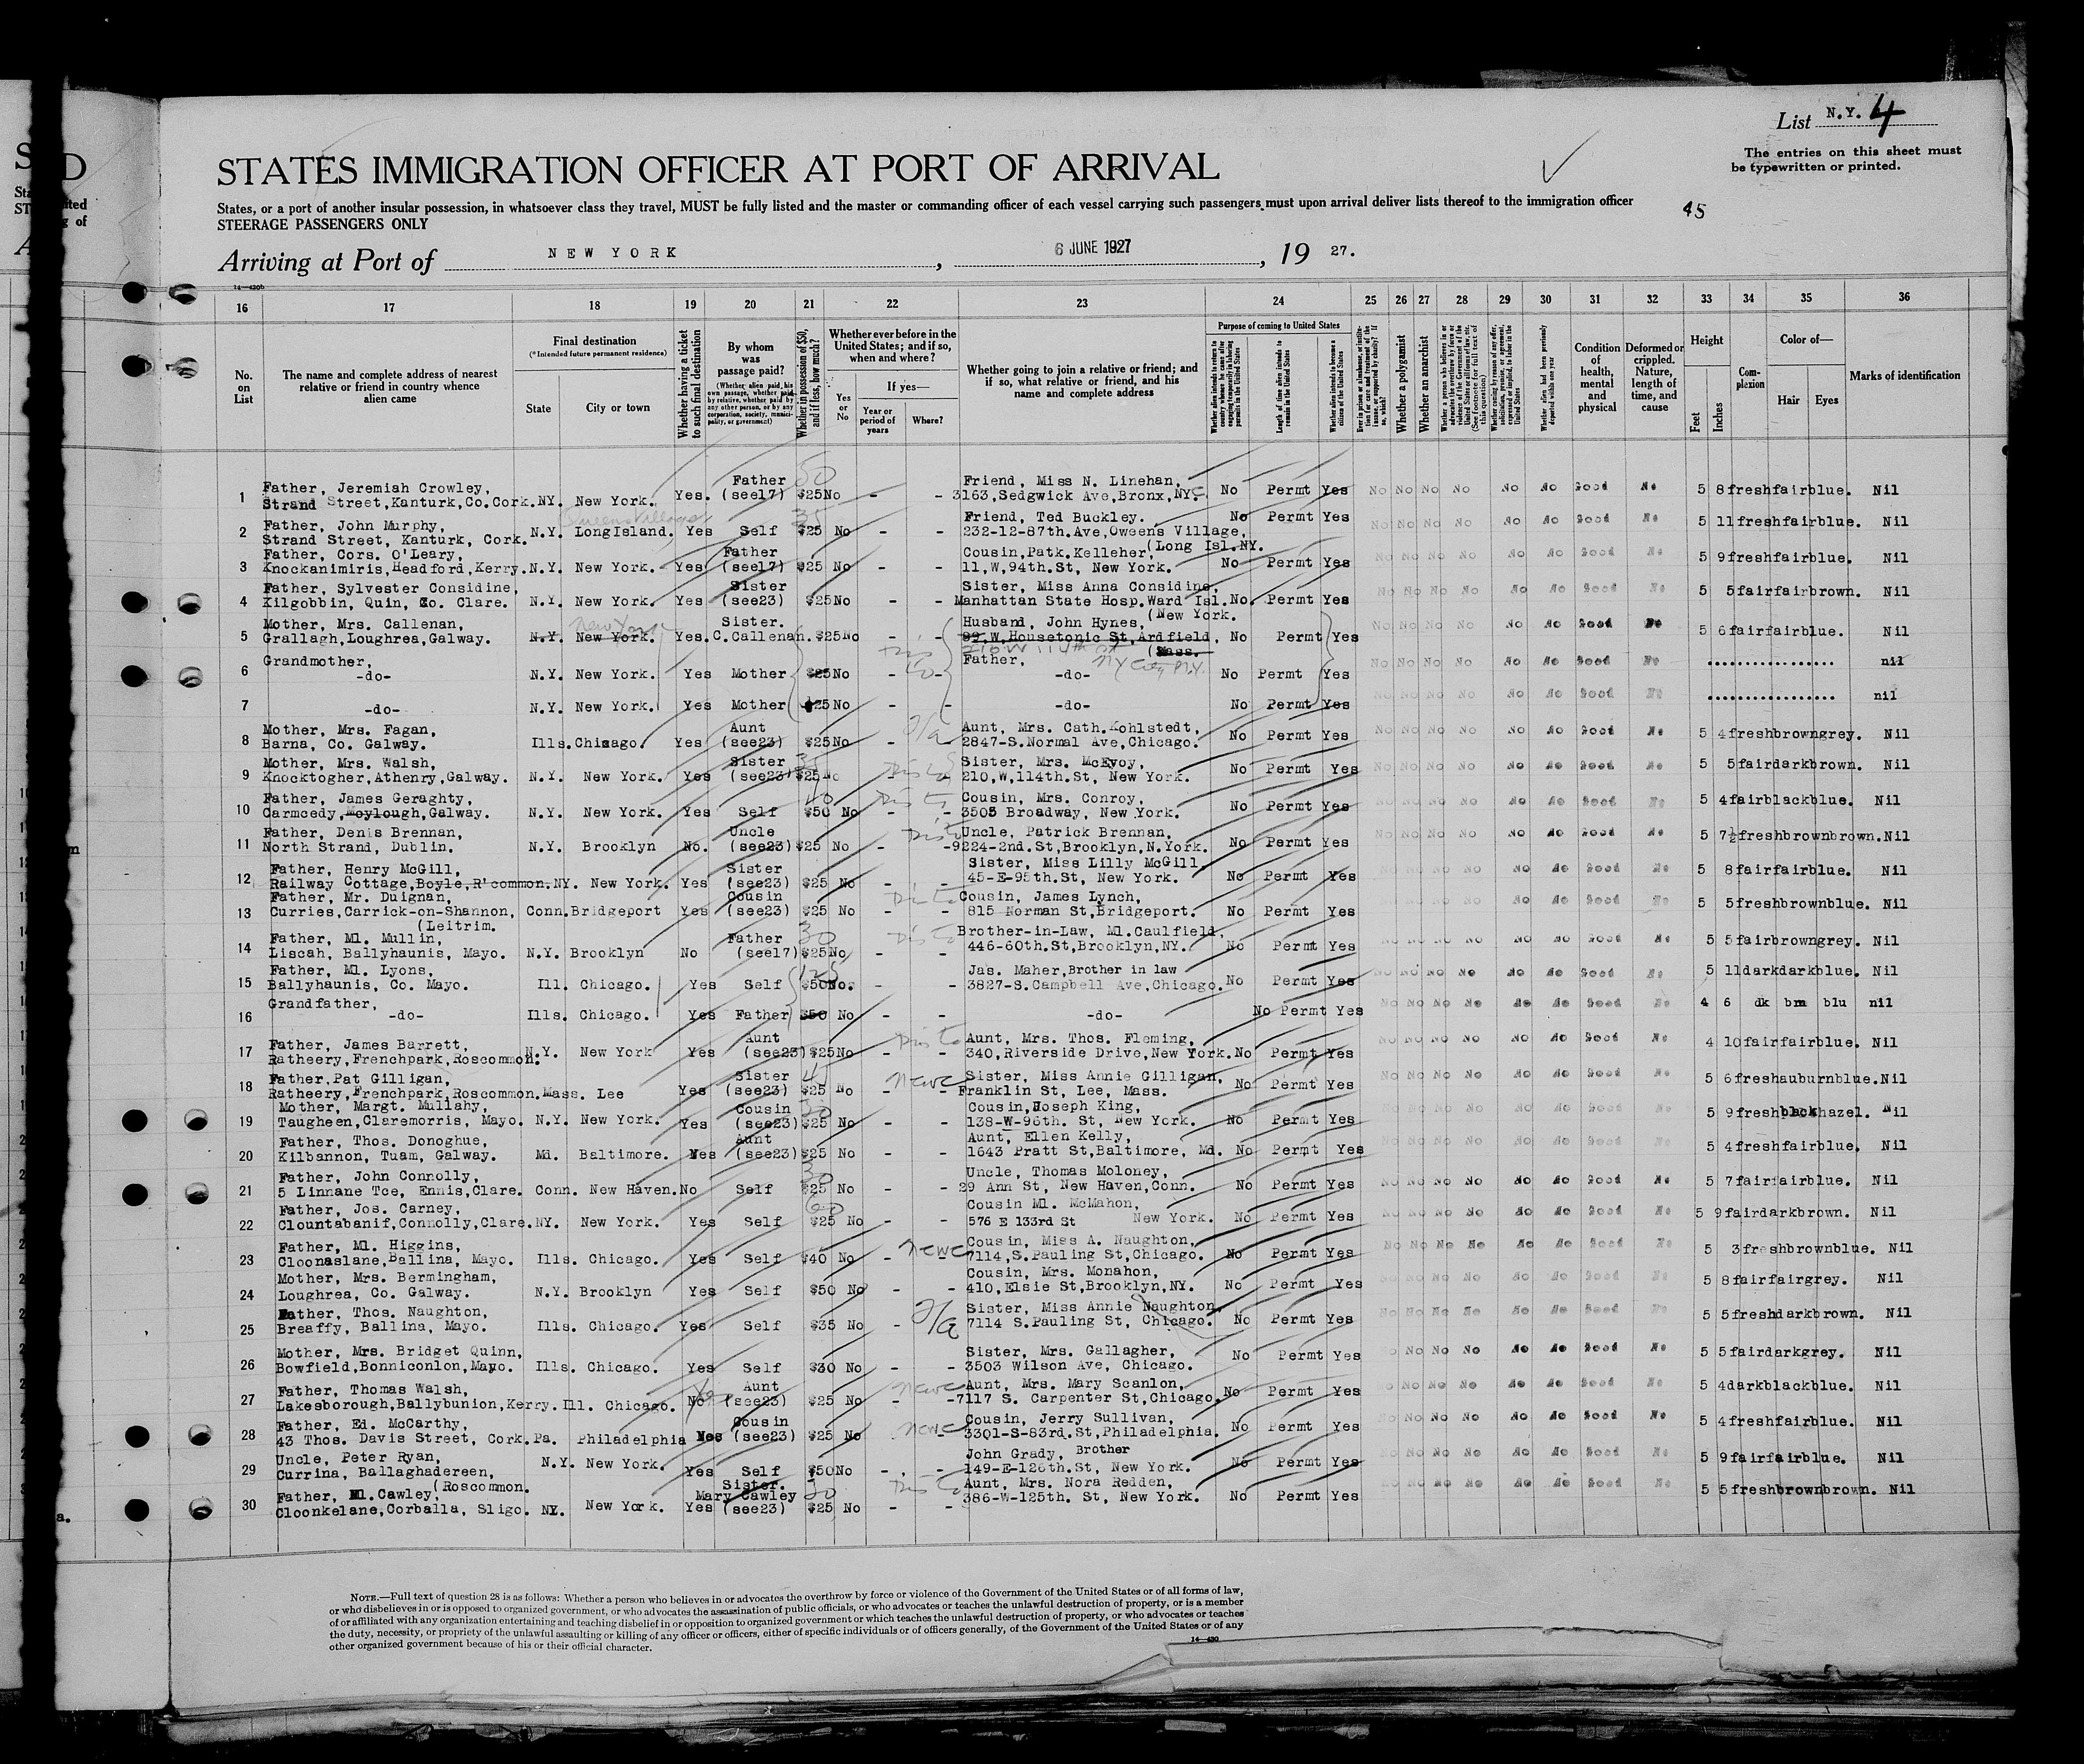 List N.Y. 4
The entries on this sheet must
be typewritten or printed.
STATES IMMIGRATION OFFICER AT PORT OF ARRIVAL
States, or a port of another insular possession, in whatsoever class they travel, MUST be fully listed and the master or commanding officer of each vessel carrying such passengers must upon arrival deliver lists thereof to the immigration officer
STEERAGE PASSENGERS ONLY
45
Arriving at Port of NEW YORK, 6 JUNE 1927, 19 27.
16 17 18 19 20 21 22 23 24 25 26 27 28 29 30 31 32 33 34 35 36
No. on List
The name and complete address of nearest relative or friend in country whence alien came
Final destination
(*Intended future permanent residence)
State
City or town
Whether having a ticket to such final destination
By whom was passage paid?
(Whether alien paid his own passage, whether paid by relative, whether paid by any other person, or by any corporation, society, municipality, or government)
Whether in possession of $50, and if less, how much?
Whether ever before in the United States; and if so, when and where?
Yes or No
If yes—
Year or period of years
Where?
Whether going to join a relative or friend; and if so, what relative or friend, and his name and complete address
Purpose of coming to United States
Whether a polygamist
Whether an anarchist
Condition of health, mental and physical
Deformed or crippled. Nature, length of time, and cause
Height
Feet
Inches
Complexion
Color of—
Hair
Eyes
Marks of identification
1 Father, Jeremiah Crowley, Father Friend, Miss N. Linehan,
Strand Street,Kanturk,Co.Cork. NY. New York. Yes. (see17) $25 No - - 3163,Sedgwick Ave,Bronx,NYC No Permt Yes No No No No No No Good No 5 8 fresh fair blue. Nil
2 Father, John Murphy, Queens Village Friend, Ted Buckley.
Strand Street, Kanturk, Cork. N.Y. LongIsland. Yes Self $25 No - - 232-12-87th.Ave,Oweens Village, (Long Isl.NY. No Permt Yes No No No No No No Good No 5 11 fresh fair blue. Nil
3 Father, Cors. O'Leary, Father Cousin,Patk.Kelleher,
Knockanimiris,Headford,Kerry. N.Y. New York. Yes (see17) $25 No - - 11,W,94th.St, New York. No Permt Yes No No No No No No Good No 5 9 fresh fair blue. Nil
4 Father, Sylvester Considine, Sister Sister, Miss Anna Considine,
Kilgobbin, Quin, Co. Clare. N.Y. New York. Yes (see23) $25 No - - Manhattan State Hosp.Ward Isl. (New York. No. Permt Yes No No No No No No Good No 5 5 fair fair brown. Nil
5 Mother, Mrs. Callenan, New York Sister. Husband, John Hynes,
Grallagh,Loughrea,Galway. N.Y. New York. Yes. C.Callenan. $25 No - - 89.W.Housetonic St,Ardfield, (Mass. No Permt Yes No No No No No No Good No 5 6 fair fair blue. Nil
210 W 114th St NY City N.Y.
6 Grandmother, Father,
-do- N.Y. New York. Yes Mother $25 No - - -do- No Permt Yes No No No No No No Good No ................. nil
7 -do- N.Y. New York. Yes Mother $25 No - - -do- No Permt Yes No No No No No No Good No ................. nil
8 Mother, Mrs. Fagan, Aunt Aunt, Mrs. Cath.Kohlstedt,
Barna, Co. Galway. Ills. Chicago. Yes (see23) $25 No - 2847-S.Normal Ave,Chicago. No Permt Yes No No No No No No Good No 5 4 fresh brown grey. Nil
9 Mother, Mrs. Walsh, Sister Sister, Mrs. McEvoy,
Knocktogher,Athenry,Galway. N.Y. New York. Yes (see23) $25 No 210,W,114th.St, New York. No Permt Yes No No No No No No Good No 5 5 fair dark brown. Nil
10 Father, James Geraghty, 40 Cousin, Mrs. Conroy,
Carmcedy,Moylough,Galway. N.Y. New York. Yes Self $50 No - - 3505 Broadway, New York. No Permt Yes No No No No No No Good No 5 4 fair black blue. Nil
11 Father, Denis Brennan, Uncle Uncle, Patrick Brennan,
North Strand, Dublin. N.Y. Brooklyn No. (see23) $25 No - - 9224-2nd.St,Brooklyn,N.York. No Permt Yes No No No No No No Good No 5 7½ fresh brown brown. Nil
12 Father, Henry McGill, Sister Sister, Miss Lilly McGill
Railway Cottage,Boyle,R'common. NY. New York. Yes (see23) $25 No - - 45-E-95th.St, New York. No Permt Yes No No No No No No Good No 5 8 fair fair blue. Nil
13 Father, Mr. Duignan, Cousin Cousin, James Lynch,
Curries,Carrick-on-Shannon, (Leitrim. Conn. Bridgeport Yes (see23) $25 No - - 815 Norman St,Bridgeport. No Permt Yes No No No No No No Good No 5 5 fresh brown blue. Nil
14 Father, Ml. Mullin, Father 30 Brother-in-Law, Ml.Caulfield,
Liscah, Ballyhaunis, Mayo. N.Y. Brooklyn No (see17) $25 No - - 446-60th.St,Brooklyn,NY. No Permt Yes No No No No No No Good No 5 5 fair brown grey. Nil
15 Father, Ml. Lyons, 125 Jas. Maher,Brother in law
Ballyhaunis, Co. Mayo. Ill. Chicago. Yes Self $50 No. - - 3827-S.Campbell Ave,Chicago. No Permt Yes No No No No No No Good No 5 11 dark dark blue. Nil
16 Grandfather,
-do- Ills. Chicago. Yes Father $50 No - - -do- No Permt Yes No No No No No No Good No 4 6 dk brn blu nil
17 Father, James Barrett, Aunt Aunt, Mrs. Thos. Fleming,
Ratheery,Frenchpark,Roscommon. N.Y. New York Yes (see23) $25 No - - 340,Riverside Drive,New York. No Permt Yes No No No No No No Good No 4 10 fair fair blue. Nil
18 Father,Pat Gilligan, Sister Sister, Miss Annie Gilligan,
Ratheery,Frenchpark,Roscommon. Mass. Lee Yes (see23) $25 No - - Franklin St, Lee, Mass. No Permt Yes No No No No No No Good No 5 6 fresh auburn blue. Nil
19 Mother, Margt. Mullahy, Cousin 30 Cousin,Joseph King,
Taugheen,Claremorris, Mayo. N.Y. New York. Yes (see23) $25 No - - 138-W-96th. St, New York. No Permt Yes No No No No No No Good No 5 9 fresh black hazel. Nil
20 Father, Thos. Donoghue, Aunt Aunt, Ellen Kelly,
Kilbannon, Tuam, Galway. Md. Baltimore. Yes (see23) $25 No - - 1643 Pratt St,Baltimore, Md. No Permt Yes No No No No No No Good No 5 4 fresh fair blue. Nil
21 Father, John Connolly, 30 Uncle, Thomas Moloney,
5 Linnane Tce, Ennis,Clare. Conn. New Haven. No Self $25 No - - 29 Ann St, New Haven,Conn. No Permt Yes No No No No No No Good No 5 7 fair fair blue. Nil
22 Father, Jos. Carney, 60 Cousin Ml. McMahon,
Clountabanif,Connolly,Clare. NY. New York. Yes Self $25 No - - 576 E 133rd St New York. No Permt Yes No No No No No No Good No 5 9 fair dark brown. Nil
23 Father, Ml. Higgins, Cousin, Miss A. Naughton,
Cloonaslane,Ballina, Mayo. Ills. Chicago. Yes Self $40 No - - 7114,S.Pauling St,Chicago. No Permt Yes No No No No No No Good No 5 3 fresh brown blue. Nil
24 Mother, Mrs. Bermingham, Cousin, Mrs. Monahon,
Loughrea, Co. Galway. N.Y. Brooklyn Yes Self $50 No - - 410,Elsie St,Brooklyn,NY. No Permt Yes No No No No No No Good No 5 8 fair fair grey. Nil
25 Father, Thos. Naughton, Sister, Miss Annie Naughton,
Breaffy, Ballina, Mayo. Ills. Chicago. Yes Self $35 No - 7114 S.Pauling St, Chicago. No Permt Yes No No No No No No Good No 5 5 fresh dark brown. Nil
26 Mother, Mrs. Bridget Quinn, Sister, Mrs. Gallagher,
Bowfield,Bonniconlon,Mayo. Ills. Chicago. Yes Self $30 No - - 3503 Wilson Ave, Chicago. No Permt Yes No No No No No No Good No 5 5 fair dark grey. Nil
27 Father, Thomas Walsh, Aunt Aunt, Mrs. Mary Scanlon,
Lakesborough,Ballybunion,Kerry. Ill. Chicago. No (see23) $25 No - - 7117 S. Carpenter St,Chicago. No Permt Yes No No No No No Good No 5 4 dark black blue. Nil
28 Father, Ed. McCarthy, Cousin Cousin, Jerry Sullivan,
43 Thos. Davis Street, Cork. Pa. Philadelphia Yes (see23) $25 No - 3301-S-83rd.St,Philadelphia. No Permt Yes No No No No No No Good No 5 4 fresh fair blue. Nil
29 Uncle, Peter Ryan, John Grady, Brother
Currina, Ballaghadereen, (Roscommon. N.Y. New York. Yes Self $50 No - - 149-E-126th.St, New York. No Permt Yes No No No No No No Good No 5 9 fair fair blue. Nil
30 Father, Ml.Cawley, Sister. Mary Cawley 30 Aunt, Mrs. Nora Redden,
Cloonkelane,Corballa, Sligo. NY. New York. Yes (see23) $25 No - - 386-W-125th. St, New York. No Permt Yes No No No No No No Good No 5 5 fresh brown brown. Nil
NOTE.—Full text of question 28 is as follows: Whether a person who believes in or advocates the overthrow by force or violence of the Government of the United States or of all forms of law,
or who disbelieves in or is opposed to organized government, or who advocates the assassination of public officials, or who advocates or teaches the unlawful destruction of property, or is a member
of or affiliated with any organization entertaining and teaching disbelief in or opposition to organized government or which teaches the unlawful destruction of property, or who advocates or teaches
the duty, necessity, or propriety of the unlawful assaulting or killing of any officer or officers, either of specific individuals or of officers generally, of the Government of the United States or of any
other organized government because of his or their official character.
14—430